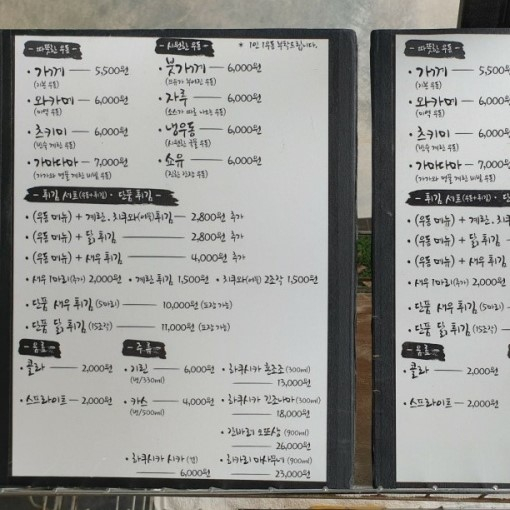 - 따뜻한 우동 -
- 시원한 우동 -
* 1인 1우동 부탁드립니다.
• 가께 — 5,500원
(기본 우동)
• 와카메 — 6,000원
(미역 우동)
• 츠키미 — 6,000원
(반숙 계란 우동)
• 가마타마 — 7,000원
• 붓가께 — 6,000원
• 자루 — 6,000원
• 냉우동 — 6,000원
(시원한 국물 우동)
• 쇼유 — 6,000원
(진한 간장 우동)
- 튀김 세트(우동+튀김) · 단품 튀김 -
• (우동 메뉴) + 계란·치쿠와(어묵)튀김 — 2,800원 추가
• (우동 메뉴) + 닭 튀김 — 2,800원 추가
• (우동 메뉴) + 새우 튀김 — 4,000원 추가
• 새우 1마리(추가) 2,000원 • 계란 튀김 1,500원 • 치쿠와(어묵) 2조각 1,500원
• 단품 새우 튀김 (5마리) — 10,000원 (포장 가능)
• 단품 닭 튀김 (15조각) — 11,000원 (포장 가능)
- 음료 -
• 콜라 — 2,000원
• 스프라이트 — 2,000원
- 주류 -
• 기린 — 6,000원
(병/330ml)
• 카스 — 4,000원
(병/500ml)
• 하쿠시카 시카 (병)
6,000원
• 하쿠시카 혼조조 (300ml)
13,000원
• 하쿠시카 긴조나마 (300ml)
18,000원
• 간바레 오또상 (900ml)
26,000원
(900ml)
23,000원
- 따뜻한 우동 -
• 가께 — 5,500
(기본 우동)
• 와카메 — 6,000
(미역 우동)
• 츠키미 — 6,000
(반숙 계란 우동)
• 가마타마 — 7,000
- 튀김 세트(우동+튀김)
• (우동 메뉴) + 계란·
• (우동 메뉴) + 닭
• (우동 메뉴) + 새우
• 새우 1마리(추가) 2,000원
• 단품 새우 튀김 (5마리)
• 단품 닭 튀김 (15조각)
- 음료 -
• 콜라 — 2,000원
• 스프라이트 — 2,000원